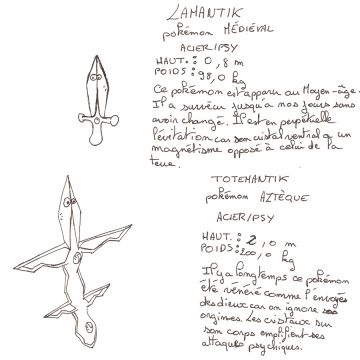 LAMANTIK
pokémon MÉDIÉVAL
ACIER/PSY
HAUT.: 0,8 m
POIDS: 98,0 kg
Ce pokémon est apparu au Moyen-âge.
Il a survécu jusqu'à nos jours sans
avoir changé. Il est en perpétuelle
lévitation car son cristal ventral a un
magnétisme opposé à celui de la
terre.
TOTEMANTIK
pokémon AZTÈQUE
ACIER/PSY
HAUT.: 2,0 m
POIDS: 200,0 kg
Il y a longtemps ce pokémon
été vénéré comme l'envoyés
des dieux car on ignore ses
origines. Les cristaux sur
son corps emplifient ses
attaques psychiques.